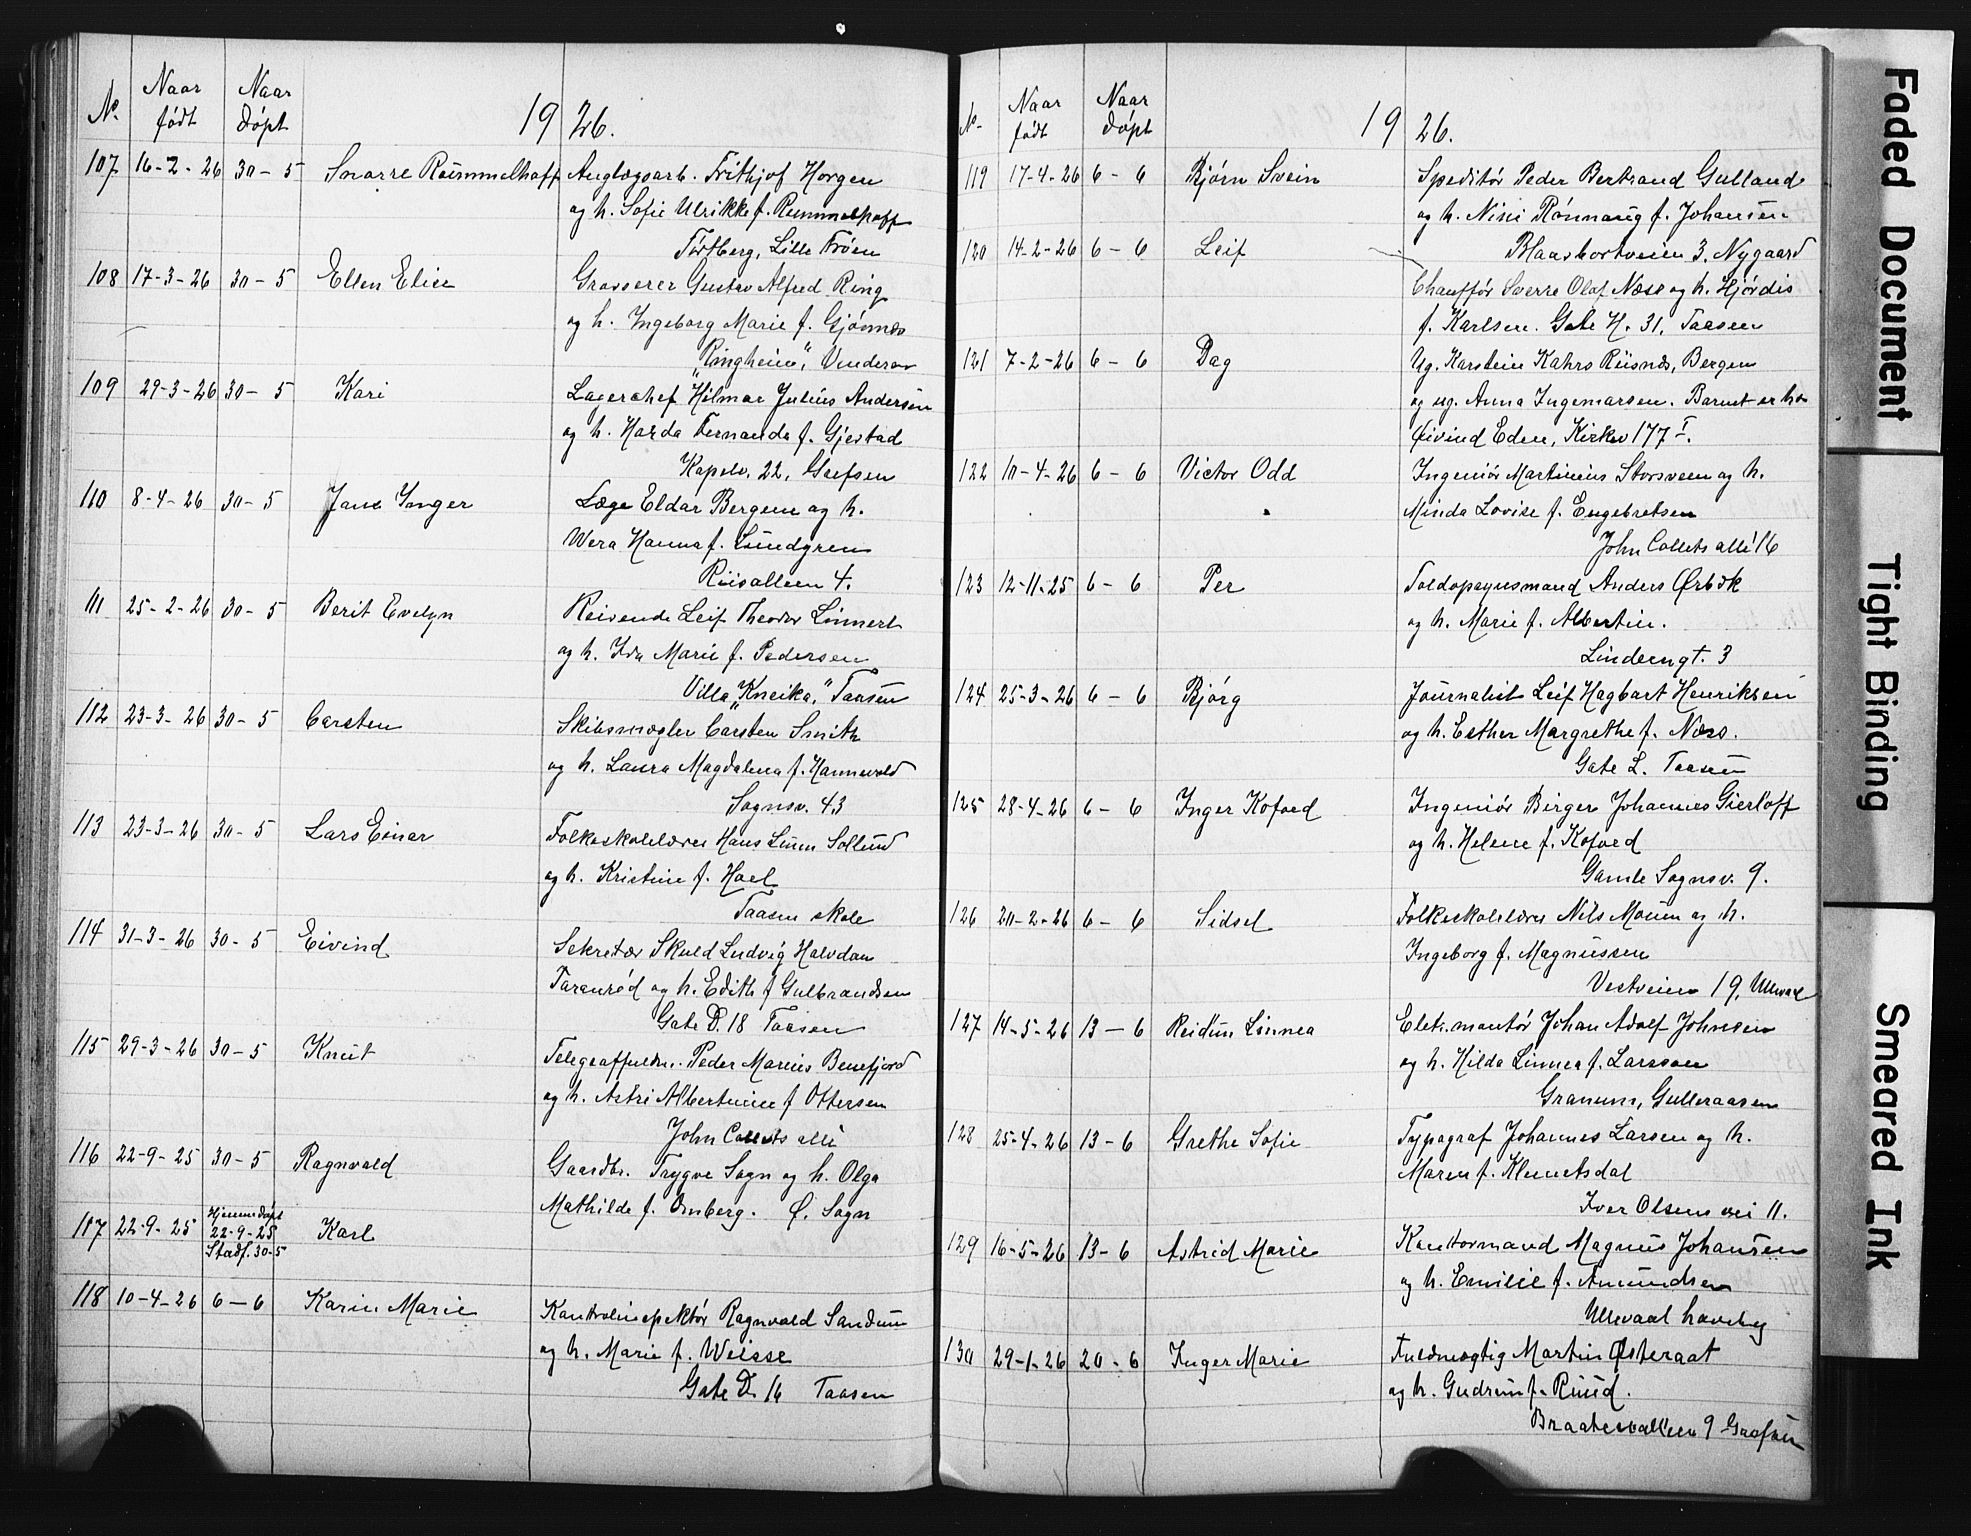 No. Naar født Naar døpt 19 26.
107 16-2-26 30-5 Snorre Rummelhoff Anglægsarb. Frithjof Horgen
og h. Sofie Ulrikke f. Rummelhoff
Tørtberg, Lille Frøen
108 17-3-26 30-5 Ellen Elise Grosserer Gustav Alfred Ring
og h. Ingeborg Marie f. Gjøvnes
"Ringheim", Vinderen
109 29-3-26 30-5 Kari Lagerchef Hilmar Julius Andersen
og h. Harda Fernanda f. Gjestad
Kapelv. 22, Grefsen
110 8-4-26 30-5 Jane Inger Læge Eldar Bergem og h.
Wera Hanna f. Lundgren
Riisalleen 4.
111 25-2-26 30-5 Berit Evelyn Reisende Leif Theodor Linnert
og h. Ida Marie f. Pedersen
Villa "Kneika," Taasen
112 23-3-26 30-5 Carsten Skibsmægler Carsten Smith
og h. Laura Magdalena f. Hannevold
Sognsv. 43
113 23-3-26 30-5 Lars Einar Folkeskolelærer Hans Linm Sollund
og h. Kristine f. Hoel
Taasen skole
114 31-3-26 30-5 Eivind Sekretær Skuld Ludvig Halvdan
Taranrød og h. Edith f Gulbrandsen
Gate D. 18 Taasen
115 29-3-26 30-5 Knut Telegraffuldm. Peder Marius Benefjord
og h. Astri Albertine f Ottersen
John Colletts allé
116 22-9-25 30-5 Ragnvald Gaardbr. Trygve Sogn og h. Olga
Mathilde f. Omberg. Ø. Sogn
117 22-9-25 Hjemmedøpt 22-9-25 Stadf. 30-5 Karl
118 10-4-26 6-6 Karin Marie Kontrolinspektør Ragnvald Sandum
og h. Marie f. Weisse
Gate D. 16 Taasen
No. Naar født Naar døpt 19 26.
119 17-4-26 6-6 Bjørn Svein Speditør Peder Bertrand Gulland
og h. Nini Rønnaug f. Johansen
120 14-2-26 6-6 Leif Blaasbortveien 3, Nygaard
Chauffør Sverre Olaf Næss og h. Hjørdis
f. Karlsen. Gate H. 31, Taasen
121 7-2-26 6-6 Dag Ug. Karstein Kahrs Riisnes, Bergen
og ug. Anna Ingemarsen. Barnet er hos
Øivind Eden, Kirkev 177 I.
122 10-4-26 6-6 Victor Odd Ingeniør Martinius Storsveen og h.
Minda Lovise f. Engebretsen
John Colletts allé 16
123 12-11-25 6-6 Per Toldopsynsmand Anders Ørbæk
og h. Marie f. Albertin.
Linderngt. 3
124 25-3-26 6-6 Bjørg Journalist Leif Hagbart Henriksen
og h. Esther Margrethe f. Næss.
Gate L. Taasen
125 28-4-26 6-6 Inger Kofoed Ingeniør Birger Johannes Gierløff
og h. Helene f. Kofoed
Gamle Sognsv. 9.
126 20-2-26 6-6 Sidsel Folkeskolelærer Nils Moum og h.
Ingeborg f. Magnussen
Vestveien 19, Ullevaal
127 14-5-26 13-6 Reidun Linnea Eletr.montør Johan Adolf Johnsen
og h. Hilda Linnea f. Larsson
Granum, Gulleraasen
128 25-4-26 13-6 Grethe Sofie Typograf Johannes Larsen og h.
Maren f. Klemetsdal
Iver Olsens vei 11.
129 16-5-26 13-6 Astrid Marie Kontormand Magnus Johansen
og h. Emilie f. Amundsen
Ullevaal haveby
130 29-1-26 20-6 Inger Marie Fuldmægtig Martin Østeraat
og h. Gudrun f. Ruud.
Braatenalleen 9 Grefsen
Faded Document
Tight Binding
Smeared Ink